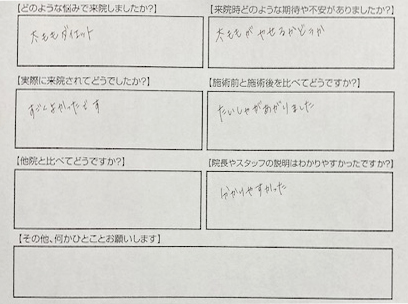 【どのような悩みで来院しましたか?】
太ももダイエット
【来院時どのような期待や不安がありましたか?】
太ももがやせるかどうか
【実際に来院されてどうでしたか?】
すごくよかったです
【施術前と施術後を比べてどうですか?】
たいしゃがあがりました
【他院と比べてどうですか?】
【院長やスタッフの説明はわかりやすかったですか?】
分かりやすかった
【その他、何かひとことお願いします】